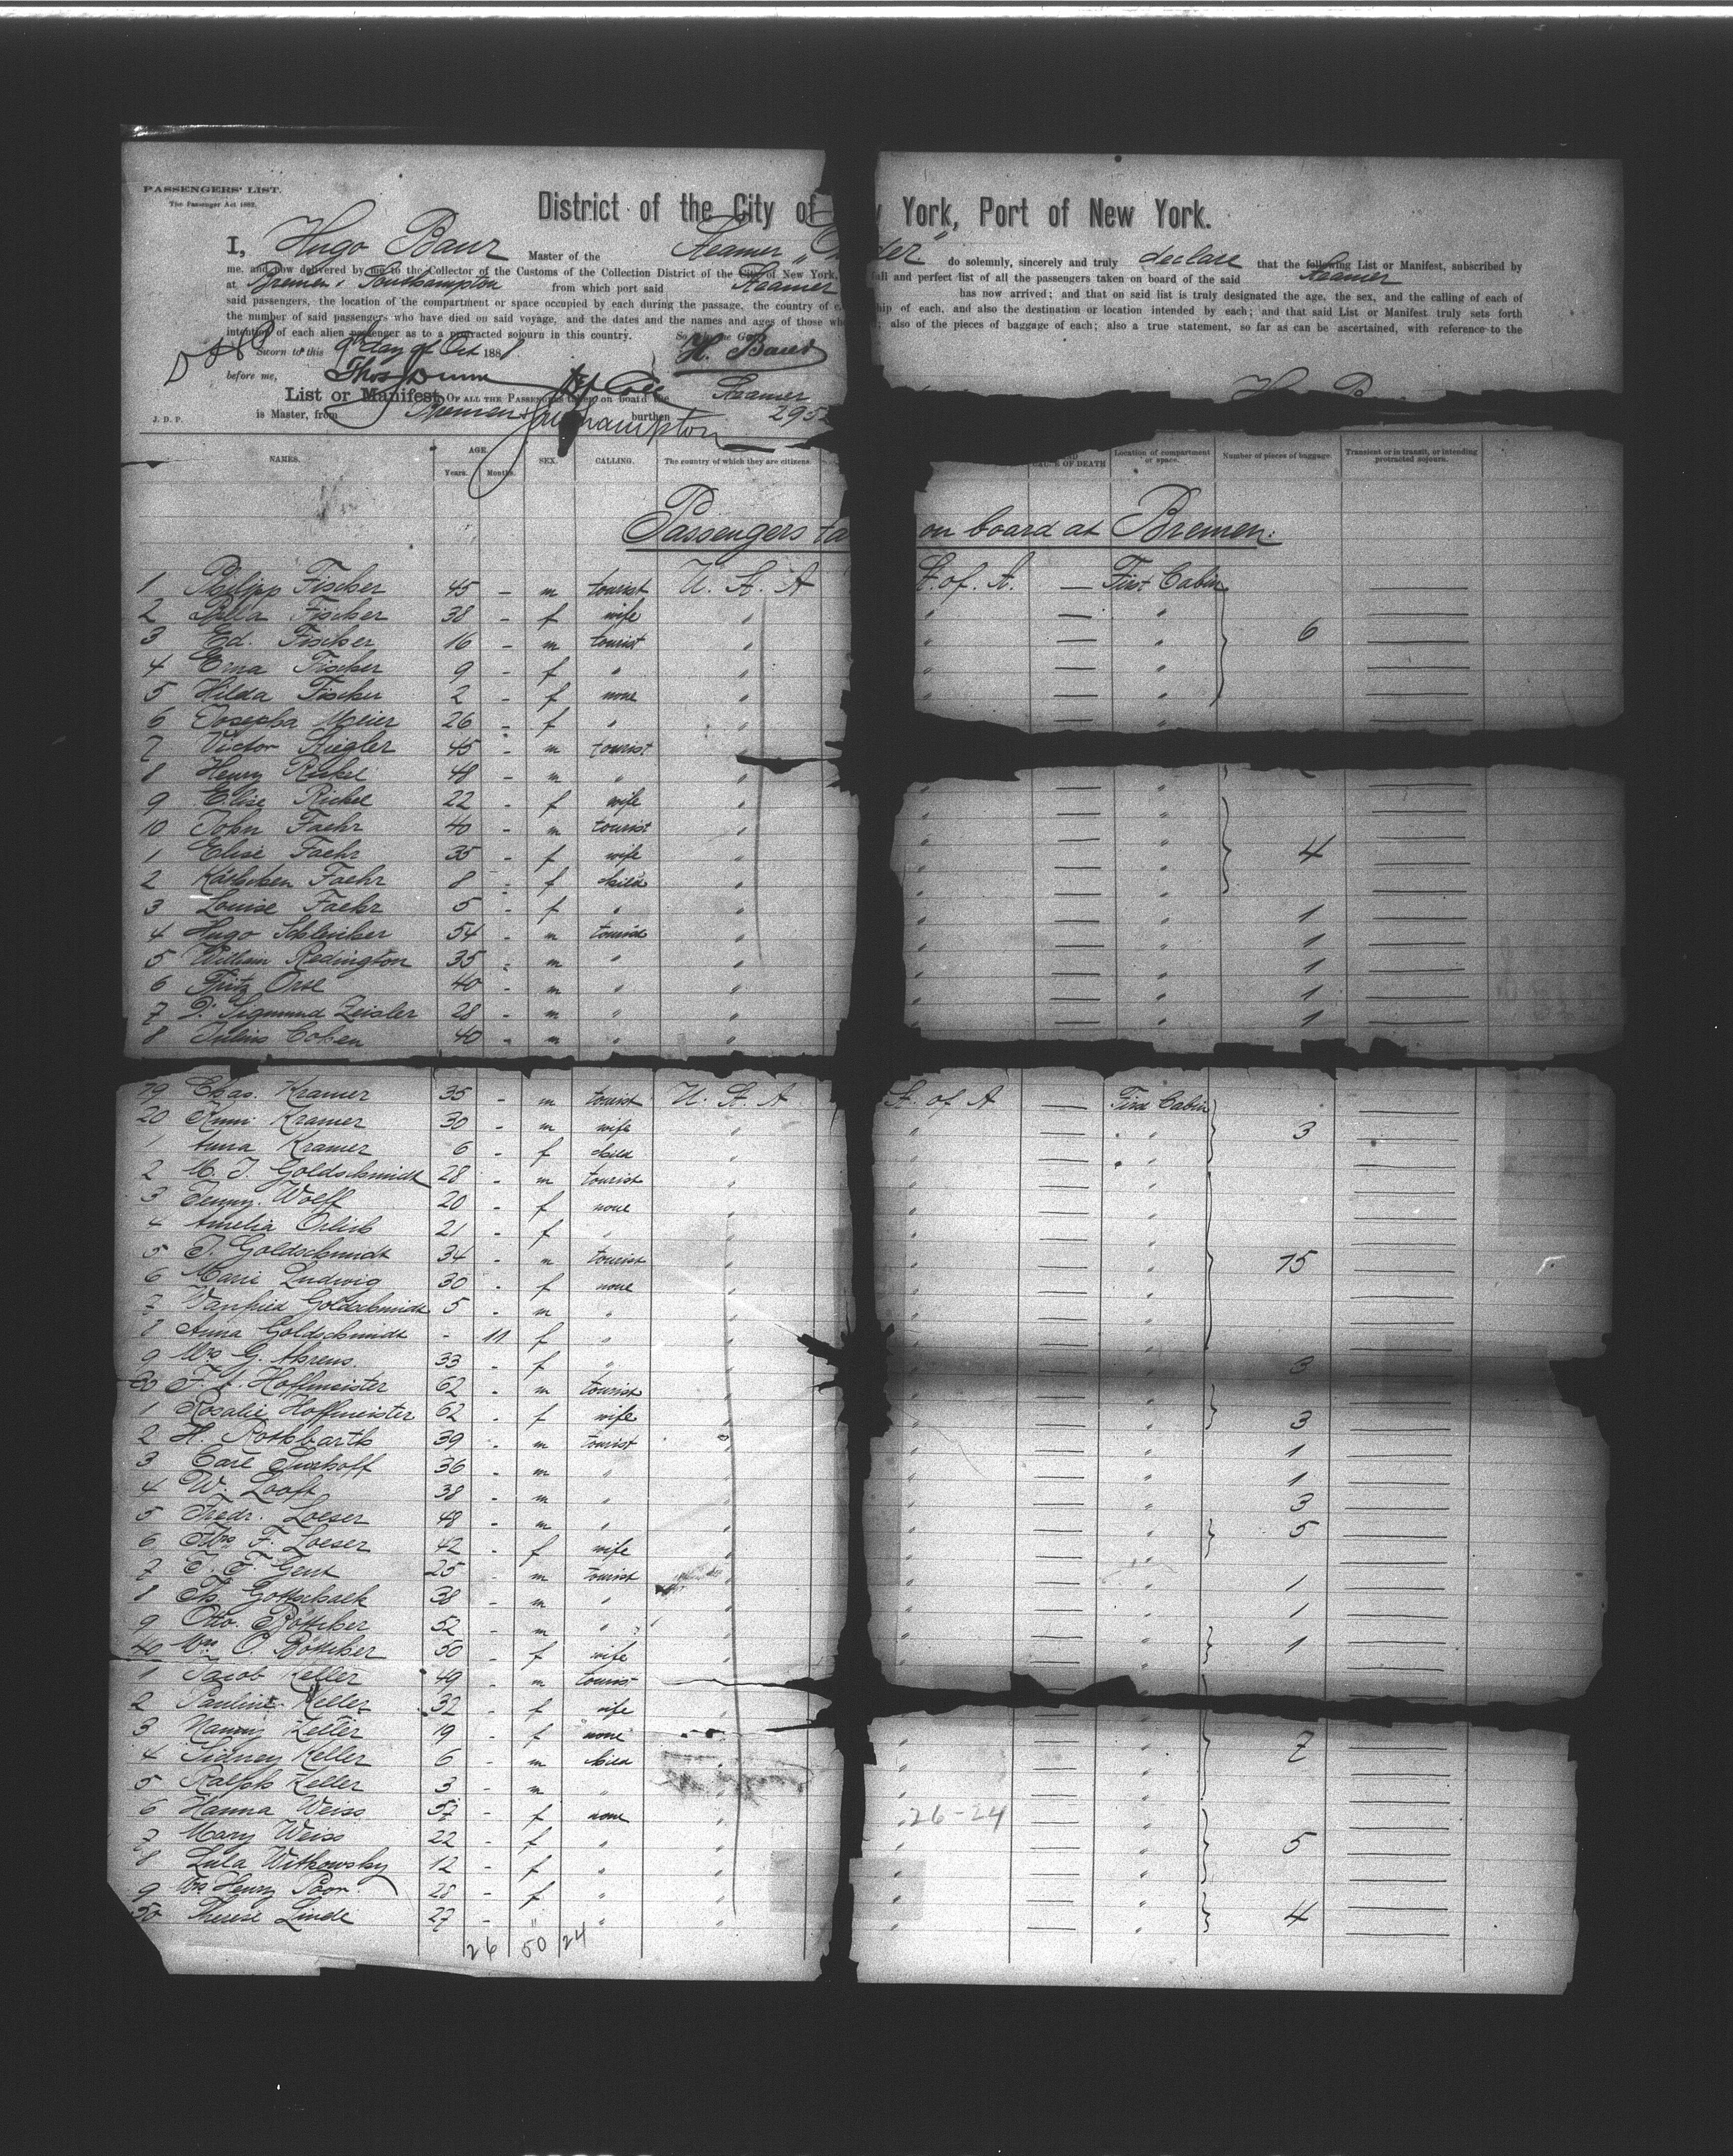 PASSENGERS' LIST.
The Passenger Act 1882.
District of the City of York, Port of New York.
I, Hugo Baur Master of the Steamer do solemnly, sincerely and truly declare that the following List or Manifest, subscribed by
me, and now delivered by me to the Collector of the Customs of the Collection District of the City of New York, full and perfect list of all the passengers taken on board of the said Steamer
at Bremen & Southampton from which port said Steamer has now arrived; and that on said list is truly designated the age, the sex, and the calling of each of
said passengers, the location of the compartment or space occupied by each during the passage, the country of of each, and also the destination or location intended by each; and that said List or Manifest truly sets forth
the number of said passengers who have died on said voyage, and the dates and the names and ages of those also of the pieces of baggage of each; also a true statement, so far as can be ascertained, with reference to the
intention of each alien passenger as to a protracted sojourn in this country.
Sworn to this day of Oct 188 H. Baur
before me, Thos Dunn
List or Manifest OF ALL THE PASSENGERS taken on board the Steamer
J. D. P. is Master, from Bremen & Southampton burthen 295
NAMES. AGE. Years. Months. SEX. CALLING. The country of which they are citizens. OF DEATH Location of compartment or space. Number of pieces of baggage Transient or in transit, or intending protracted sojourn.
Passengers ta on board at Bremen:
1 Philipp Fischer 45 - m tourist U. S. A St. of A. — First Cabin
2 Fischer 38 - f wife " " — "
3 Ed. Fischer 16 - m tourist " " — " 6
4 Erna Fischer 9 - f " " " — "
5 Hilda Fischer 2 - f none " " — "
6 Josepha Meier 26 - f " " — "
7 Victor Stiegler 45 - m tourist "
8 Henry Rickel 48 - m " " "
9 Elise Rickel 22 - f wife " " — "
10 John Faehr 40 - m tourist " " — "
1 Elise Faehr 35 - f wife " " — " 4
2 Käthchen Faehr 8 - f child " " — "
3 Louise Faehr 5 - f " " " — "
4 Hugo Schleicher 54 - m tourist " " — " 1
5 William Redington 35 - m " " " — " 1
6 Fritz Orse 40 - m " " " — " 1
7 D. Sigmund Zeisler 28 - m " " " — " 1
8 Julius Cohen 40 - m " " " — " 1
19 Chas. Kramer 35 - m tourist U. S. A St. of A — First Cabin
20 Kramer 30 - m wife " " — " 3
1 Anna Kramer 6 - f child " " — "
2 M. J. Goldschmidt 28 - m tourist " " — "
3 Jenny Wolff 20 - f none " " — "
4 Amelia 21 - f " " " — "
5 J. Goldschmidt 34 - m tourist " " — " 15
6 Marie Ludwig 30 - f none " " — "
7 Goldschmidt 5 - m " " " — "
8 Anna Goldschmidt - 11 f " " " — "
9 Mrs G. Ahrens 33 - f " " 3
30 F. Hoffmeister 62 - m tourist " " — "
1 Rosalie Hoffmeister 62 - f wife " " — " 3
2 H. Rothbarth 39 - m tourist " " — " 1
3 Carl 36 - m " " " — " 1
4 W. Looft 38 - m " " " — " 3
5 Fredr. Loeser 48 - m " " " — " 5
6 Mrs F. Loeser 42 - f wife " " — "
7 Gent 25 - m tourist " " — " 1
8 Th. Gottschalk 38 - m " " " — " 1
9 Otto Böttcher 52 - m " " " — " 1
40 Mrs O. Böttcher 50 - f wife " " — "
1 Jacob Keller 49 - m tourist "
2 Pauline Keller 32 - f wife " "
3 Nanny Keller 19 - f none " " — " 7
4 Sidney Keller 6 - m child " " — "
5 Ralph Keller 3 - m " " " — "
6 Hanna Weiss 57 - f none " 26-24 — "
7 Mary Weiss 22 - f " " " — " 5
8 Lula Witkowsky 12 - f " " " — "
9 Mrs Henry Poor. 28 - f " " " — " 4
50 Therese Linde 27 - " " " " — "
26 50 24